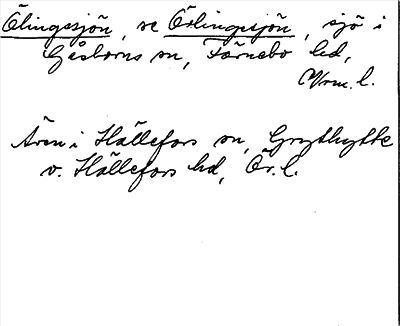 Ölingssjön, se Örlingssjön, sjö i
Gåsborns sn, Färnebo hd,
Vrm. l.
Även i Hällefors sn, Grythytte
o. Hällefors hd, Ör. l.